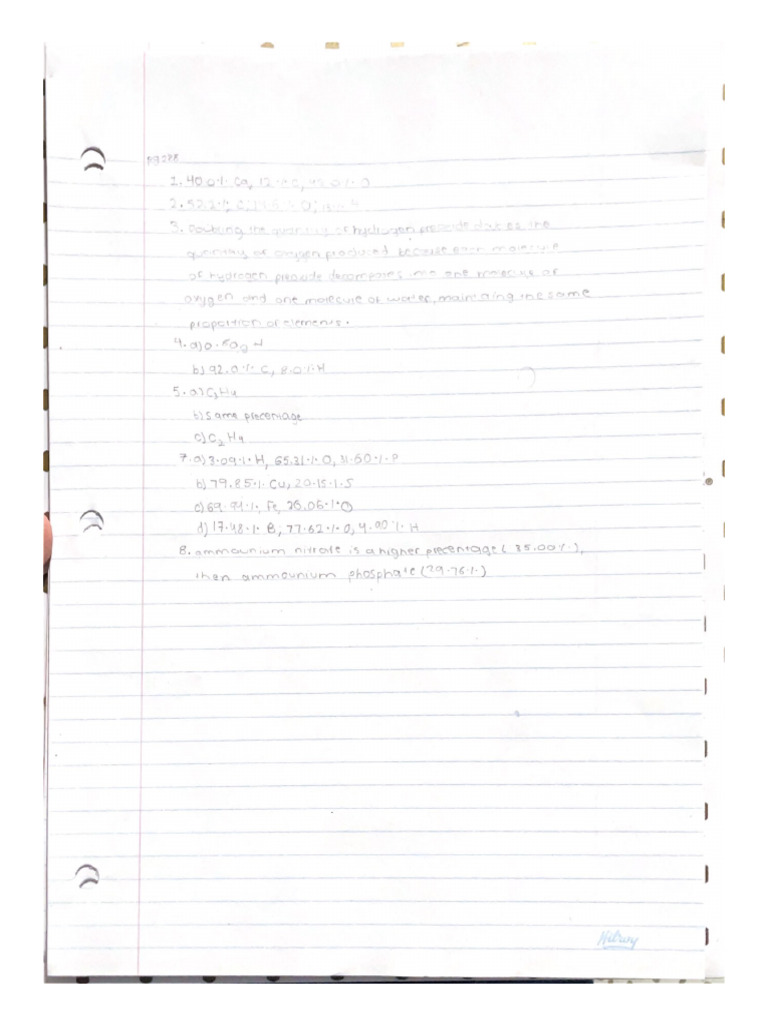 pg 278
1. 40.0% Ca, 12. % C, 48.0% O
2. 52.2% C, O, H
3. Doubling the quantity of hydrogen peroxide doubles the
quantity of oxygen produced because each molecule
of hydrogen peroxide decomposes into one molecule of
oxygen and one molecule of water, maintaing the same
proportion of elements.
4. a)
b) 92.0% C, 8.0% H
5. a)
b) same precentage
c) C₂H₄
7. a) 3.09% H, 65.31% O, 31.60% P
b) 79.85% Cu, 20.15% S
c) 69.94% Fe, 26.06% O
d) 17.48% B, 77.62% O, 4.90% H
8. ammounium nitrate is a higher precentage (35.00%),
then ammounium phosphate (29.76%)
Hilrary